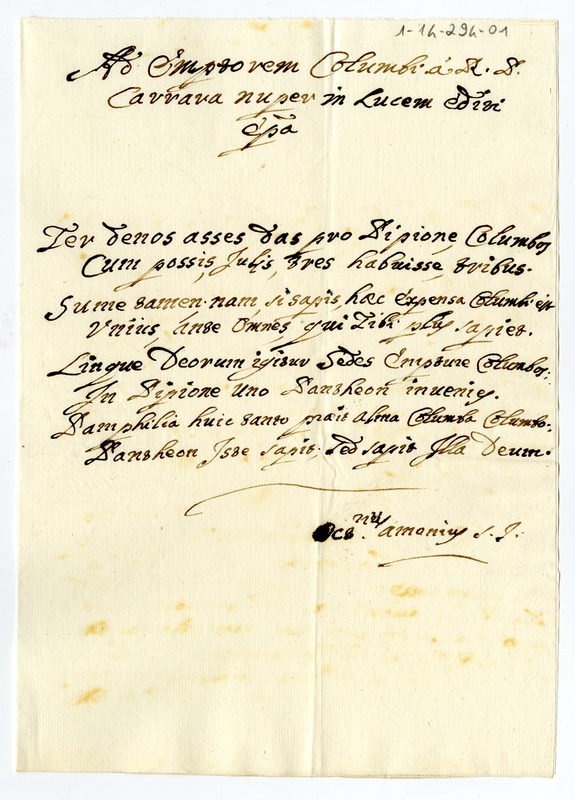 1-14-294-01
Ad Emptorem Columbi á R. P.
Carrara nuper in Lucem editi
Epa
Ter denos asses das pro Pipione Columbos
Cum possis, Julijs, tres habuisse, tribus.
Sume tamen. nam si sapis, hæc expensa Columbi est
Unius, ante omnes qui Tibi plus sapiet.
Linque Deorum igitur Sedes Empture Columbos:
In Pipione Uno Pantheon invenies.
Pamphilia huic tanto præit alma Columba Columbo.
Pantheon Iste sapit; sed sapit Illa Deum.
Octnus amenius S. J.